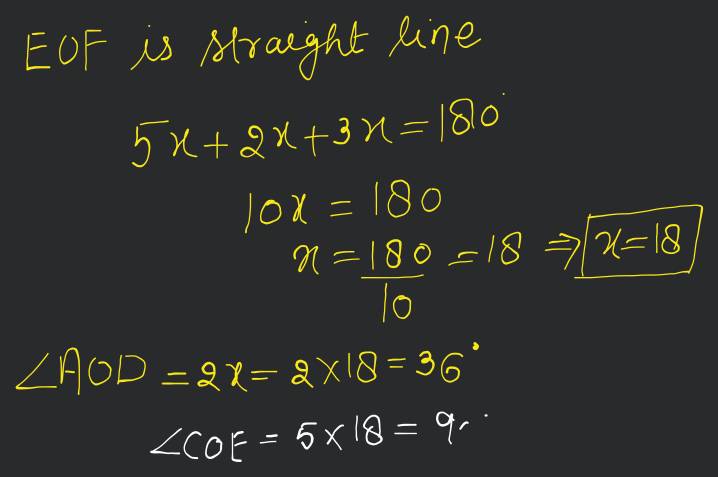 EOF is straight line
5x+2x+3x=180°
10x = 180
x = 180/10 = 18 ⇒ x=18
∠AOD = 2x = 2×18 = 36°
∠COE = 5×18 =